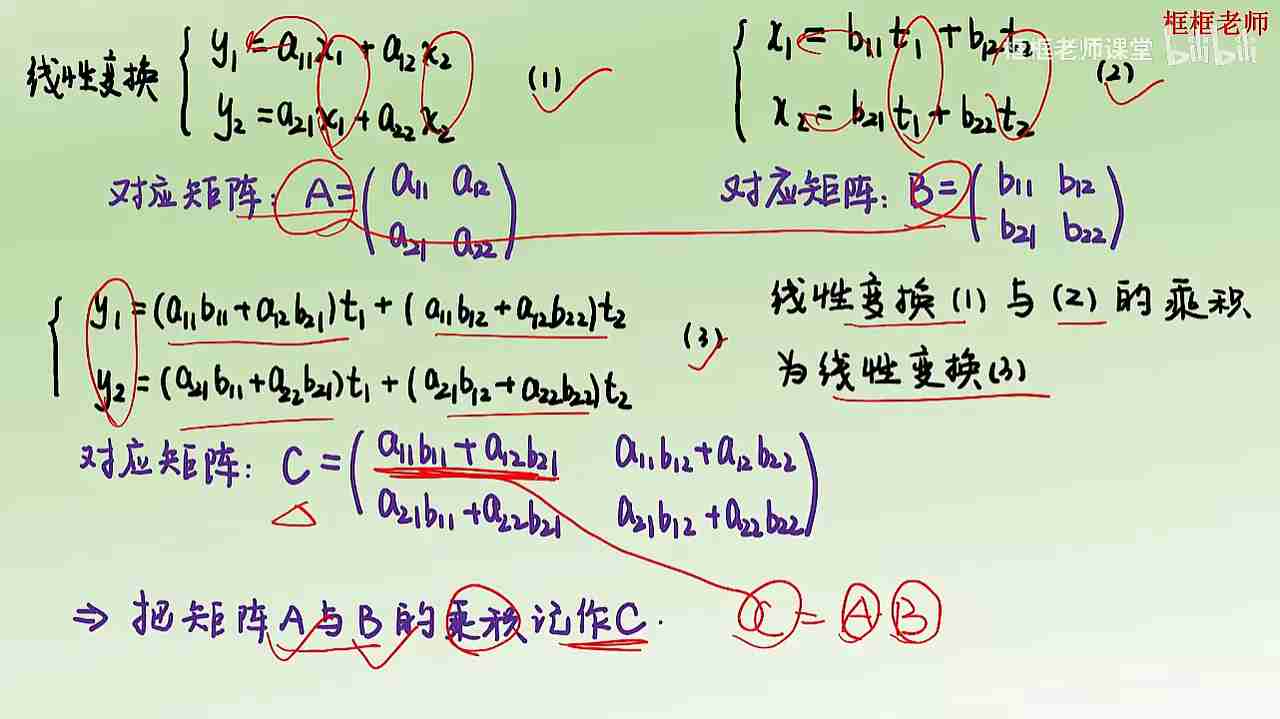 框框老师
框框老师课堂 bilibili
线性变换 { y₁ = a₁₁x₁ + a₁₂x₂
y₂ = a₂₁x₁ + a₂₂x₂ (1)
{ x₁ = b₁₁t₁ + b₁₂t₂
x₂ = b₂₁t₁ + b₂₂t₂ (2)
对应矩阵: A = ( a₁₁ a₁₂
a₂₁ a₂₂ )
对应矩阵: B = ( b₁₁ b₁₂
b₂₁ b₂₂ )
{ y₁ = (a₁₁b₁₁ + a₁₂b₂₁)t₁ + (a₁₁b₁₂ + a₁₂b₂₂)t₂
y₂ = (a₂₁b₁₁ + a₂₂b₂₁)t₁ + (a₂₁b₁₂ + a₂₂b₂₂)t₂ (3)
线性变换(1)与(2)的乘积
为线性变换(3)
对应矩阵: C = ( a₁₁b₁₁ + a₁₂b₂₁ a₁₁b₁₂ + a₁₂b₂₂
a₂₁b₁₁ + a₂₂b₂₁ a₂₁b₁₂ + a₂₂b₂₂ )
⇒ 把矩阵A与B的乘积记作C. C = A B